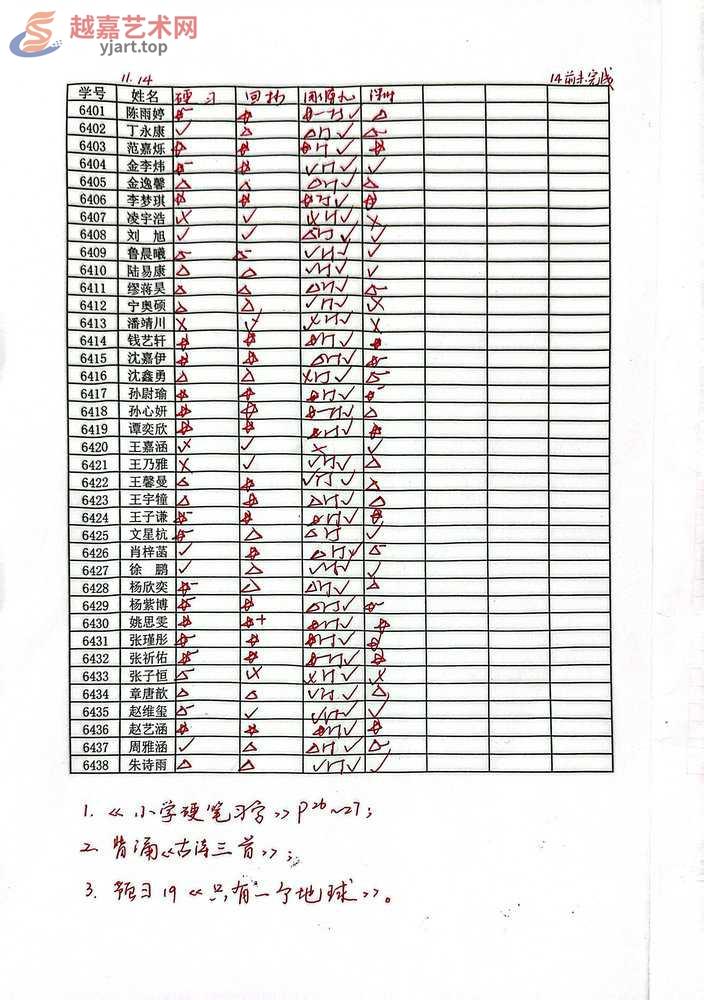 越嘉艺术网
yjart.top
11.14 14前未完成
学号 姓名 硬习
6401 陈雨婷
6402 丁永康
6403 范嘉烁
6404 金李炜
6405 金逸馨
6406 李梦琪
6407 凌宇浩
6408 刘旭
6409 鲁晨曦
6410 陆易康
6411 缪蒋昊
6412 宁奥硕
6413 潘靖川
6414 钱艺轩
6415 沈嘉伊
6416 沈鑫勇
6417 孙尉瑜
6418 孙心妍
6419 谭奕欣
6420 王嘉涵
6421 王乃雅
6422 王馨曼
6423 王宇犝
6424 王子谦
6425 文星杭
6426 肖梓菡
6427 徐鹏
6428 杨欣奕
6429 杨紫博
6430 姚思雯
6431 张瑾彤
6432 张祈佑
6433 张子恒
6434 章唐歆
6435 赵维玺
6436 赵艺涵
6437 周雅涵
6438 朱诗雨
1.《小学硬笔习字》P26~27;
2.背诵《古诗三首》;
3.预习19《只有一个地球》。